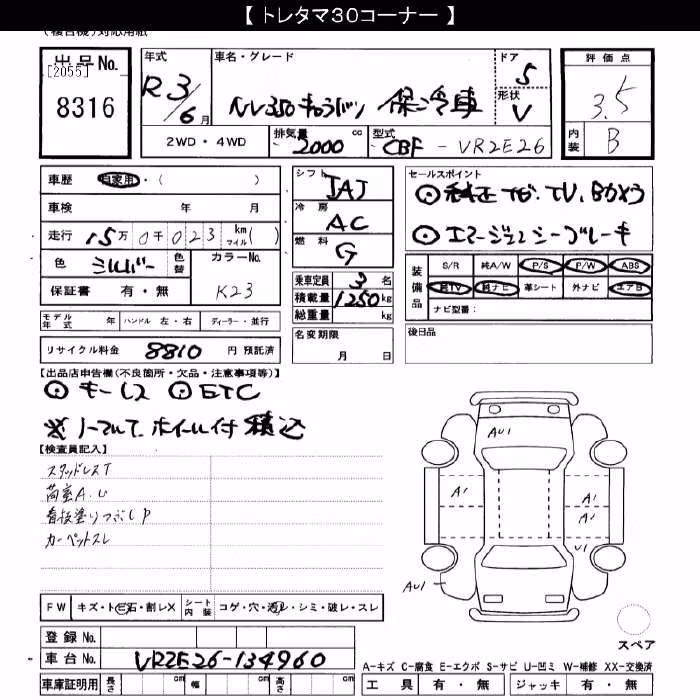 【 トレタマ30コーナー 】
出品No. 年式 車名・グレード ドア 評価点
[2055] R3/6月 NV350キャラバン 保冷車 5 3.5
8316 形状 V 内装 B
2WD・4WD 排気量 2000 cc 型式 CBF - VR2E26
車歴 自家用・( )
車検 年 月
走行 15万0千023 km マイル( )
色 シルバー 色替 カラーNo. K23
保証書 有・無
シフト IAT
冷房 AC
燃料 G
乗車定員 3名
積載量 1250kg
総重量 kg
名変期限 月 日
セールスポイント
⊙純正ナビ.TV,Bカメラ
⊙エマージェンシーブレーキ
装備品 S/R 純A/W P/S P/W ABS
純TV 純ナビ 革シート 外ナビ エアB
ナビ型番:
後日品
モデル年式 年 ハンドル 左・右 ディーラー・並行
リサイクル料金 8810 円 預託済
【出品店申告欄(不良箇所・欠品・注意事項等)】
⊙キーレス ⊙ETC
※ノーマルT ホイール付 積込
【検査員記入】
スタッドレスT
荷室A.U
看板塗りつぶしP
カーペットスレ
FW キズ・トビ石・割レX シート内装 コゲ・穴・汚レ・シミ・破レ・スレ
登録No.
車台No. VR2E26-134960
車庫証明用 長さ cm 幅 cm 高さ cm
AU1
A1
A1
A1
U1
AU1
スペア
A-キズ C-腐食 E-エクボ S-サビ U-凹ミ W-補修 XX-交換済
工具 有・無 ジャッキ 有・無